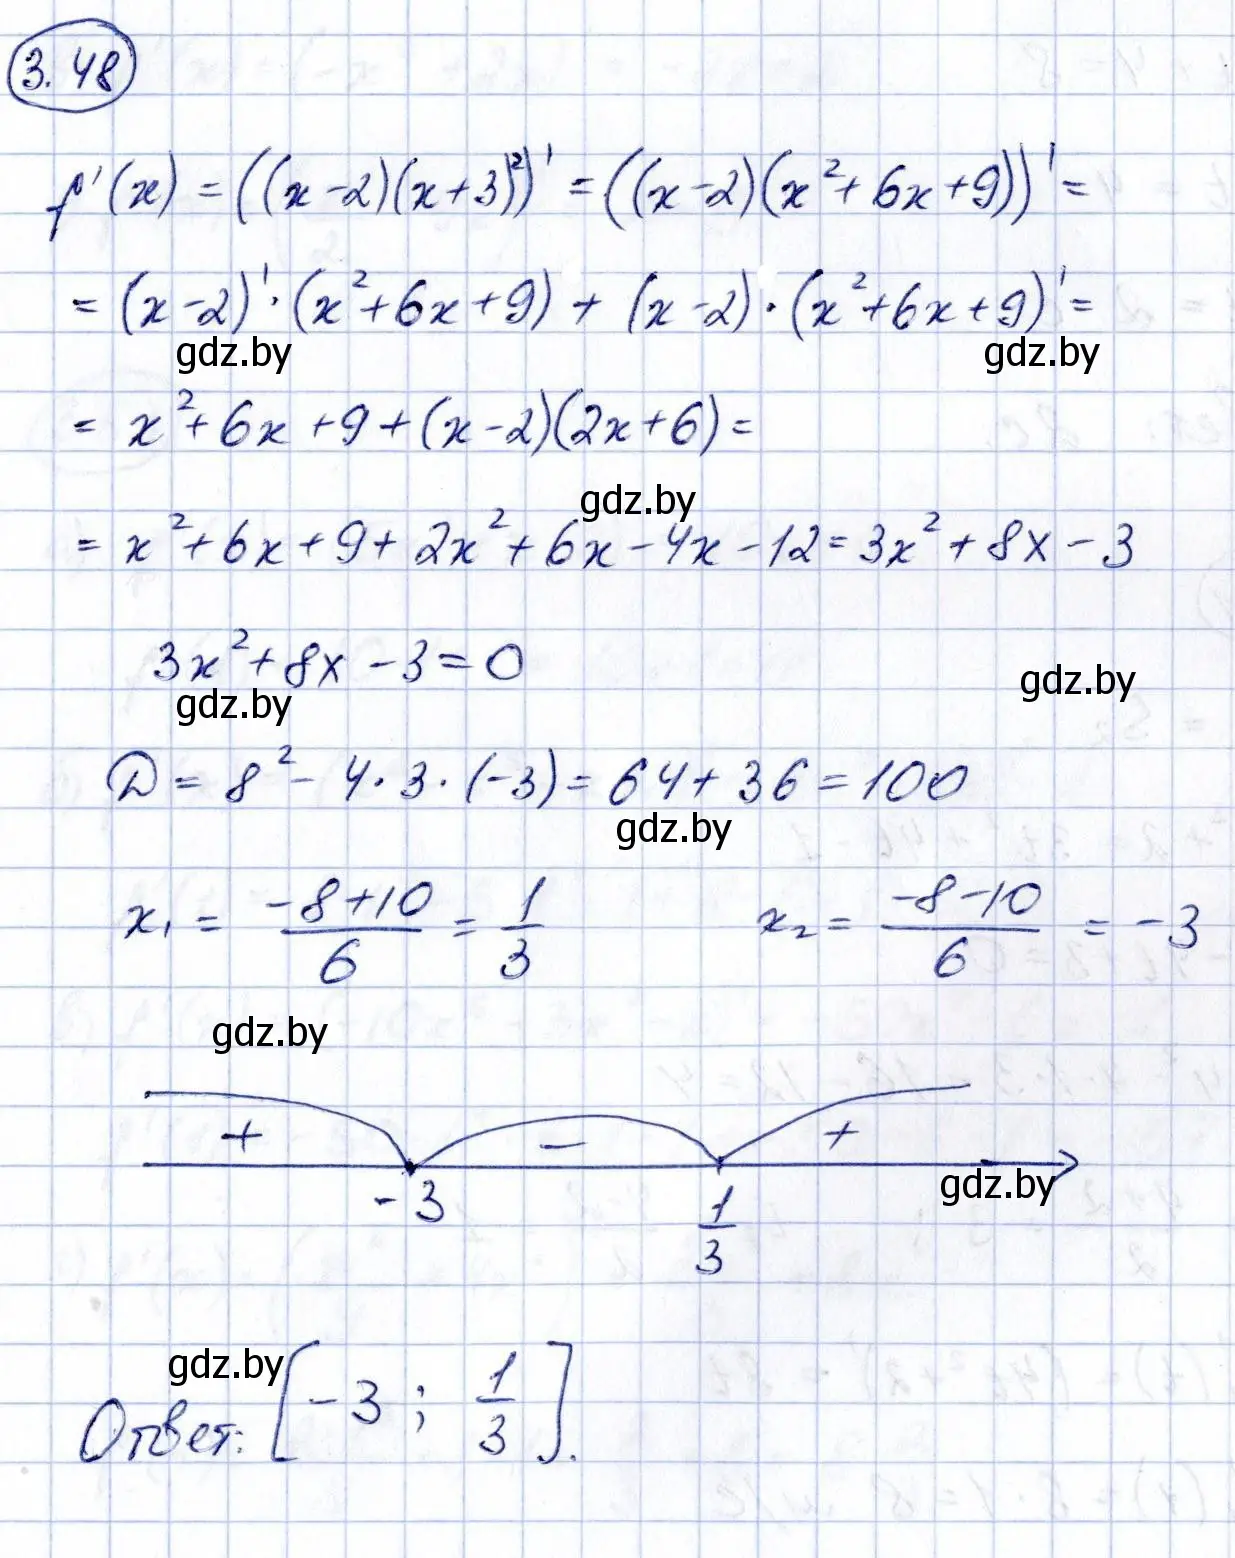 3.48
f'(x) = ((x-2)(x+3)²)' = ((x-2)(x²+6x+9))' =
= (x-2)'·(x²+6x+9) + (x-2)·(x²+6x+9)' =
gdz.by gdz.by
= x²+6x+9+(x-2)(2x+6)=
gdz.by
= x²+6x+9+2x²+6x-4x-12=3x²+8x-3
3x²+8x-3=0
gdz.by gdz.by
D = 8² - 4·3·(-3) = 64+36=100
gdz.by
x₁ = \frac{-8+10}{6} = \frac{1}{3} x₂ = \frac{-8-10}{6} = -3
gdz.by
+ − +
gdz.by
-3 \frac{1}{3}
gdz.by
Ответ: [-3; \frac{1}{3}].